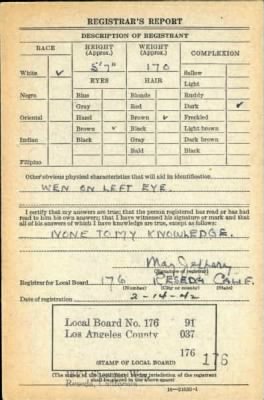 REGISTRAR'S REPORT
DESCRIPTION OF REGISTRANT
RACE HEIGHT (Approx.) WEIGHT (Approx.) COMPLEXION
White ✓ 5'7" 170 Sallow
EYES HAIR Light
Negro Blue Blonde Ruddy
Gray Red Dark ✓
Oriental Hazel Brown ✓ Freckled
Brown ✓ Black Light brown
Indian Black Gray Dark brown
Bald Black
Filipino
Other obvious physical characteristics that will aid in identification
WEN ON LEFT EYE.
I certify that my answers are true; that the person registered has read or has had
read to him his own answers; that I have witnessed his signature or mark and that
all of his answers of which I have knowledge are true, except as follows:
NONE TO MY KNOWLEDGE.
(Signature of registrar)
Registrar for Local Board 176 RESEDA CALIF.
(Number) (City or county) (State)
Date of registration 2-14-42
Local Board No. 176 91
Los Angeles County 037
176
176
(STAMP OF LOCAL BOARD)
Reseda, California